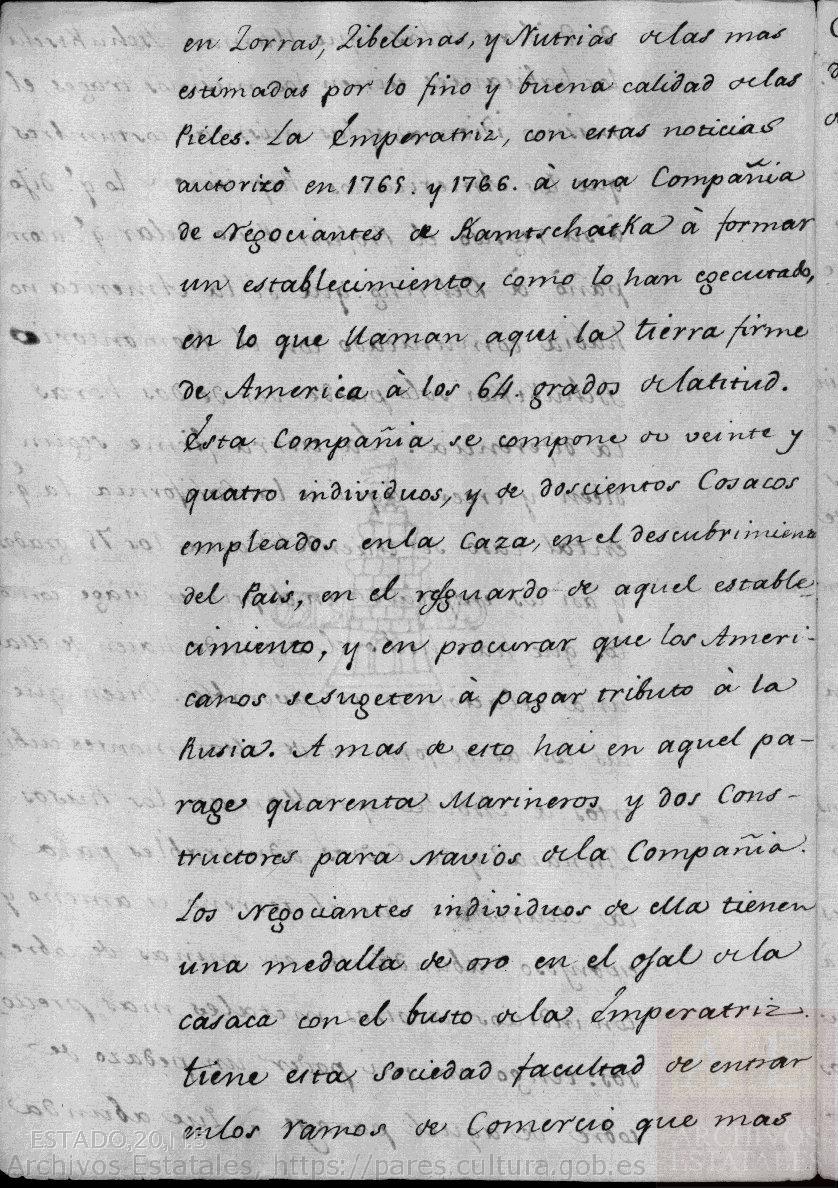 en Zorras, Zibelinas, y Nutrias de las mas
estimadas por lo fino y buena calidad de las
Pieles. La Emperatriz, con estas noticias
autorizò en 1765. y 1766. à una Compañia
de Negociantes de Kamtschatka à formar
un establecimiento, como lo han egecutado,
en lo que llaman aqui la tierra firme
de America à los 64. grados de latitud.
Esta Compañia se compone de veinte y
quatro individuos, y de doscientos Cosacos
empleados en la Caza, en el descubrimiento
del Pais, en el resguardo de aquel estable-
cimiento, y en procurar que los Ameri-
canos se sugeten à pagar tributo à la
Rusia. A mas de esto hai en aquel pa-
rage quarenta Marineros y dos Cons-
tructores para Navios de la Compañia.
Los Negociantes individuos de ella tienen
una medalla de oro en el ojal de la
casaca con el busto de la Emperatriz.
tiene esta Sociedad facultad de entrar
en los ramos de Comercio que mas
ESTADO,20,
Archivos Estatales, https://pares.cultura.gob.es
ARCHIVOS
ESTATALES